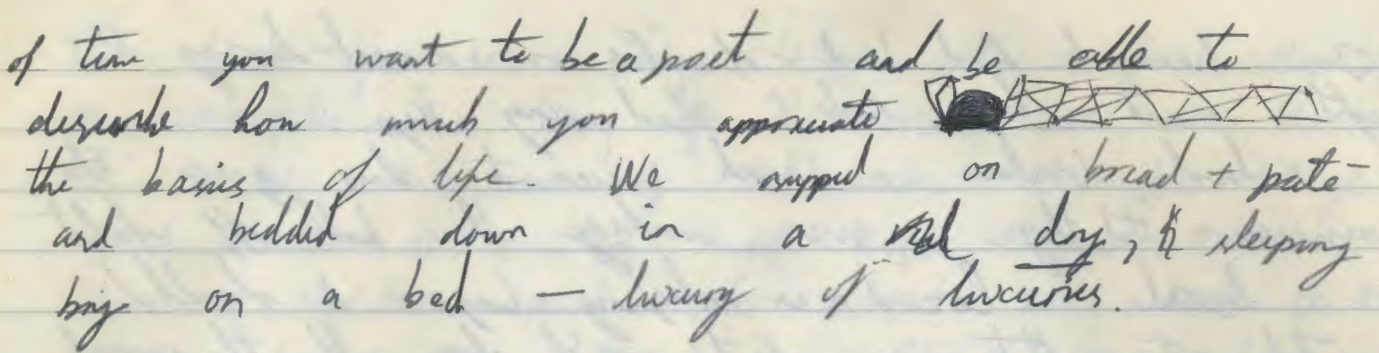 of time you want to be a poet and be able to
describe how much you appreciate
the basics of life. We supped on bread + paté
and bedded down in a dry, sleeping
bag on a bed — luxury of luxuries.